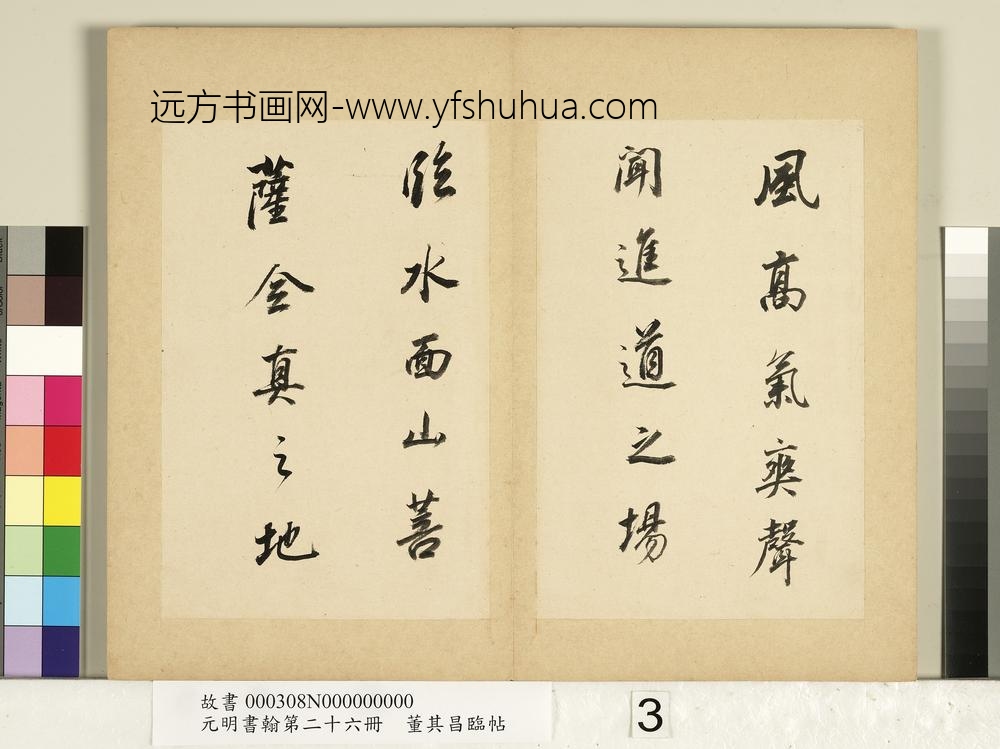 远方书画网-www.yfshuhua.com
風高氣爽聲
聞進道之場
臨水面山菩
薩全真之地
故書 000308N000000000
元明書翰第二十六冊 董其昌臨帖
3